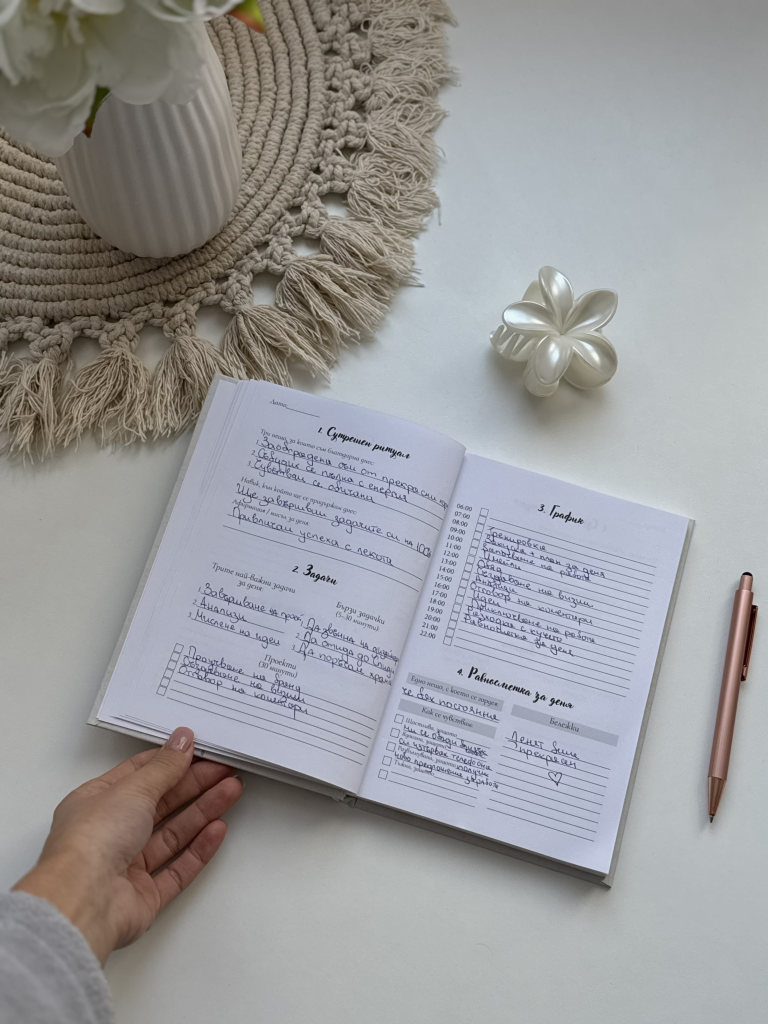 Дата
1. Сутрешен ритуал
Три неща, за които съм благодарна днес:
1. Заобградена съм от прекрасни
2. Събудих се пълна с енергия
3. Чувствам се обичана
Навик, към който ще се придържам днес:
Ще завършвам задачите си на 100%
Афирмация / мисъл за деня
Привличам успеха с лекота
2. Задачи
Трите най-важни задачи
за деня
1. Завършване на
2. Анализи
3. Мислене на идеи
Бързи задачки
(5-10 минути)
1. Да звънна на
2. Да отида до
3. Да поръчам
Проекти
(30 минути)
Проучване на бранд
Създаване на визии
Отговор на коментари
3. График
06:00
07:00
08:00
09:00 Тренировка
10:00 Закуска + план за деня
11:00 Започване на работа
12:00 Имейли
13:00 Обяд
14:00 Създаване на визии
15:00 Анализи
16:00 Отговор на коментари
17:00 Идеи
18:00 Приключване на работа
19:00 Разходка с кучето
20:00 Равносметка за деня
21:00
22:00
4. Равносметка за деня
Едно нещо, с което се гордея
че бях постоянна
Как се чувствам
Щастлива, защото
ми се обади
Тъжна, защото
Бележки
Денят беше
прекрасен